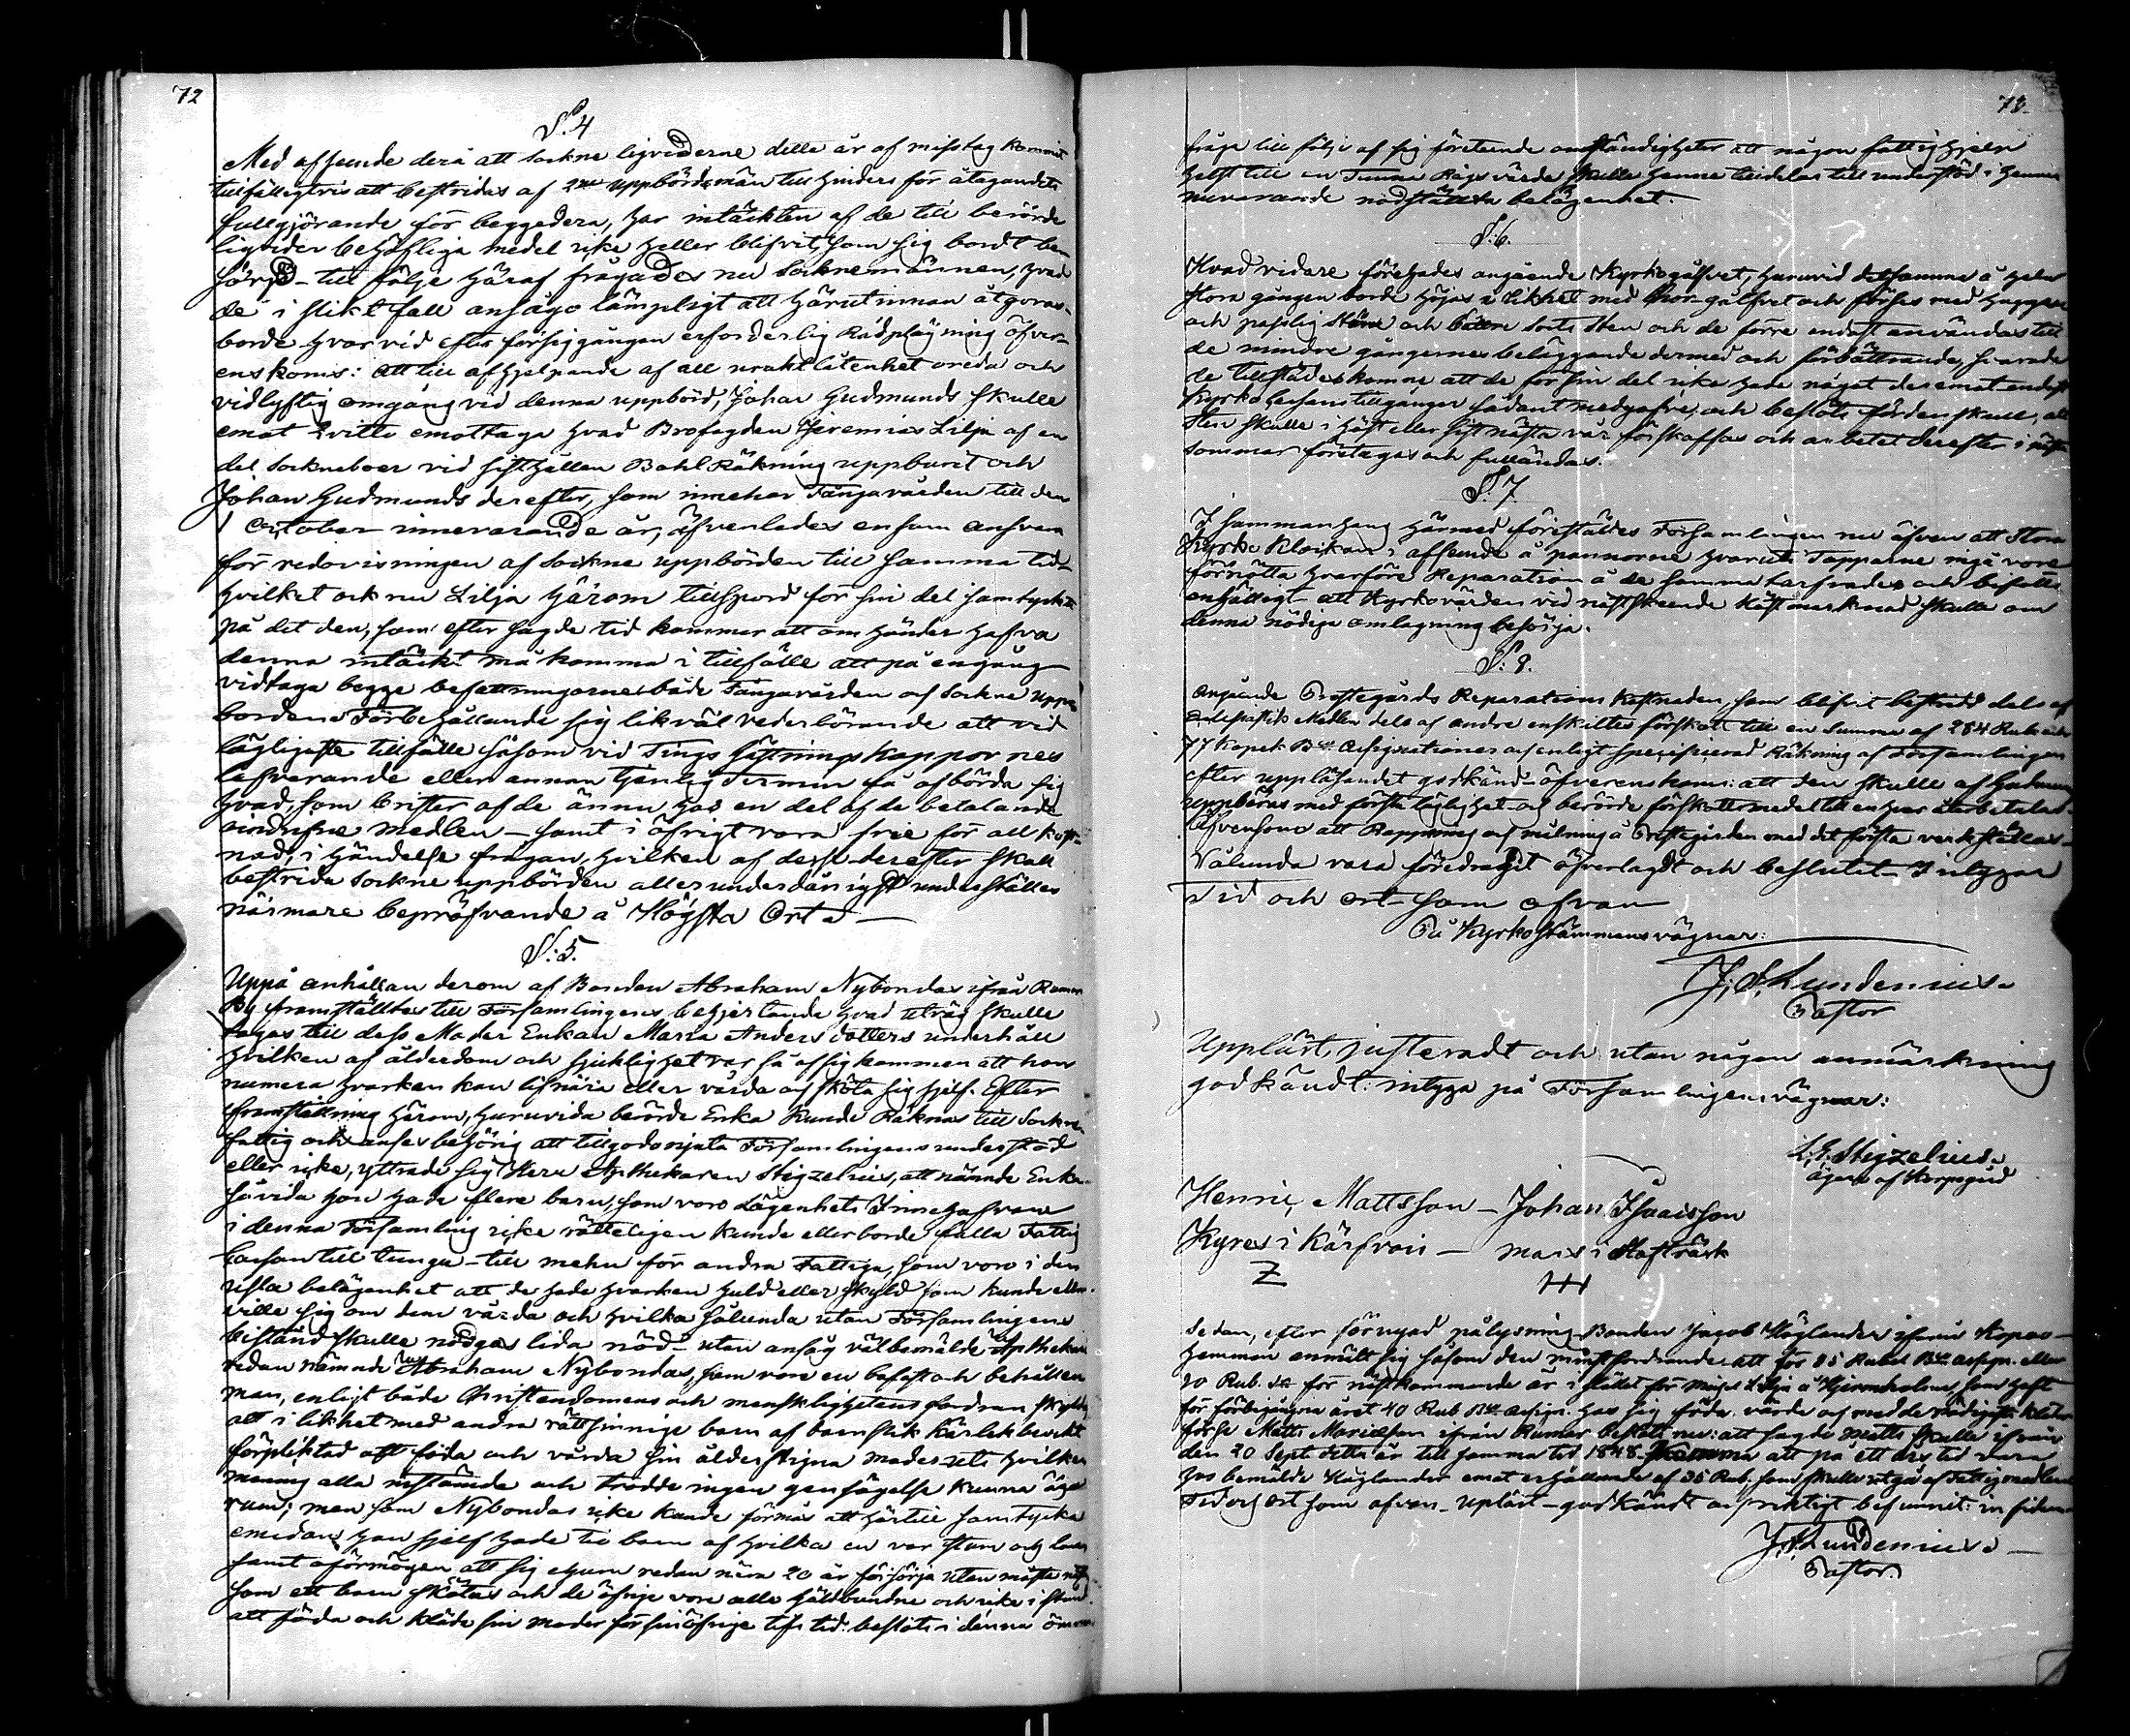 72
§. 4
Med afseende derå att sockne liqviderne detta år af misstag kommit
tillfälligtvis att bestridas af 2ne uppbördsmän till hinders för åtagandets
fullgjörande för beggedera, har intäckten af de till berörde
liqvider behöfliga medel icke heller blifvit, som sig bordt be-
hörig – till följe häraf frågades nu Socknemännen, hvad
de i slikt fall ansågo lämpligt att härutinnan åtgöras
borde hvarvid efter försiggången erforderlig Rådplägning öfver-
enskoms: att till afhjelpande af all uraktlåtenhet oreda och
vidlyftig omgång vid denna uppbörd, Johan Gudmunds skulle
emot qvitto emottaga hvad Brofogden Jeremias Lilja af en
del sockneboer vid sisthållen Bahl Räkning uppburit och
Johan Gudmunds derefter, som innehar Tångavården till den
1 October innevarande år, äfvenledes ensam ansvara
för redovisningen af sockne uppbörden till samma tid
hvilket ock nu Lilja härom tillspord för sin del samtyckte
på det den, som efter sagde tid kommer att om händer hafva
denna intäckt må komma i tillfälle att på engång
vidtaga begge befattningarne både Tångavården och sockne upp-
börden. Förbehållande sig likväl vederbörande att vid
lägligaste tillfälle såsom vid Tings kappornes
lefverande eller annan tjenlig Termin få afbörda sig
hvad, som brister af de ännu hos en del af de betalande
oindrifne medlen – samt i öfrigt vara frie för all kost-
nad, i händelse frågan, hvilken af dem derefter skall
bestrida sockne uppbörden allerunderdånigst underställes
närmare bepröfvande å Högsta Ort. –
§. 5.
Uppå anhållan derom af Bonden Abraham Nybondas ifrån
By framställdes till Församlingens behjertande hvad utväg skulle
tagas till dess Moder Enkan Maria Anders dotters underhåll
hvilken af ålderdom och sjuklighet var så afsigkommen att hon
numera hvarken kan lifnära eller vårda och sköta sig sjelf. Efter
framställning härom, huruvida berörde Enka kunde räknas till Sockne-
fattig och anses behörig att tillgodonjuta Församlingens understöd
eller icke, yttrade sig Herr Apthekaren Stigzelius, att nämnde Enka
såvida hon hade flere barn, som voro Lägenhets Innehafvare
i denna Församling icke rätteligen kunde eller borde falla Fattig
Cassan till tunga – till mehn för andra Fattiga, som voro i den
usla belägenhet att de hade hvarken huld eller skyld som kunde eller
ville sig om dem vårda och hvilka sålunda utan Församlingens
bistånd skulle nödgas lida nöd – utan ansåg välbemälde Apthekare
redan nämnde Abraham Nybondas, som vore en besuten behållen
man, enligt både Christendomens och mensklighetens fordran skyldig
att i likhet med andra rättsinnige barn af barnslik kärlek bevekt
förpliktad att föda och vårda sin ålderstigna moder, uti hvilken
mening alla instämde och trodde ingen gensägelse kunna äga
rum; men som Nybondas icke kunde förmås att härtill samtycka
emedan han sjelf hade tie barn af hvilka en var stum och lam
samt oförmögen att sig ehuru redan nära 20 år försörja utan måste
som ett barn skötas och de öfrige vore alle gäldbundne och icke i stånd
att föda och kläda sin moder för sin öfrige lifs tid: beslöts i denna
73
fråge till följe af sig företeende omständigheter att någon fattighjelp
helst till en Tunna Rågs värde skulle henne tilldelas till understöd i hennes
nuvarande nödställda belägenhet.
§. 6.
Hvad vidare förehades angående Kyrkogålfvet, huruvid detsamma å hela
Stora gången borde höjas i likhet med Chor-gålfvet och förses med huggen
och passlig Sten och bättre sorts Sten och de förre endast användas till
de mindre gångernes beläggande dermed och förbättrande, svarade
de tillstädeskomne att de för sin del icke hade något deremot endast
Kyrko Cassans tillgångar sådant medgåfvo, och beslöts fördenskull, att
Sten skulle i höst eller sist nästa vår förskaffas och arbetet derefter i nästa
sommar företagas och fulländas.
§. 7.
I sammanhang härmed föreställdes Församlingen nu äfven att Stora
Kyrko Klockan i afseende å pannorne hvaruti Tapparne ingå vore
förnötta hvarföre Reparation å de samma tarfvades och bifölls
enhälligt att Kyrkovärden vid nästskeende Höst marknad skulle om
denna nödiga omlagning besörja.
§. 8.
Angående Prestegårds Reparations Kostnaden, som blifvit bestridd dels af
Medlen dels af andre enskiltes förskott till en Summa af 284 Rub och
77 Kopek B:co Assignationer och enligt specificerad Räkning af Församlingen
efter uppläsandet godkänd – öfverenskoms: att den skulle af
uppbäras med första läglighet och berörde förskottsmedel till enhvar återbetalas.
Äfvensom att Rappning och målning å Prestegården med det första verkställas –
Sålunda vara föredraget öfverlagdt och beslutit Intygar
Tid och ort som ofvan
På Kyrkostämmans vägnar:
J. S. Lundenius.
Pastor
Uppläst, justeradt och utan någon anmärkning
godkändt: intyga på Församlingens vägnar:
L. E. Stigzelius.
ägare af Korpogård
Henric Mattsson – Johan Isacsson
Kyres i Kärfvois – Mars i Hafträsk
Sedan, efter förnyad pålysning Bonden Jacob Höglander ifrån Kopas-
hemman anmält sig såsom den minst fordrande att för 35 Rubel B:co assign. eller
10 Rub. S:r för nästkommande år i stället för Lilja å Hjerneholm, som haft
för förbigångna året 40 Rub B:co Assign. hos sig föda vårda och med de nödigste kläder
förse Matts Marielson ifrån Rumar beslöts nu: att sagde Matts skulle ifrån
den 20 Sept. detta år till samma tid 1848 komma att på ett års tid vara
hos bemälde Höglander emot erhållande af 35 Rub, som skulle utgå af Fattigmedlen
Tid och Ort som ofvan – Upläst – godkändt och riktigt befunnit: in fidem
J. S. Lundenius. –
Pastor.